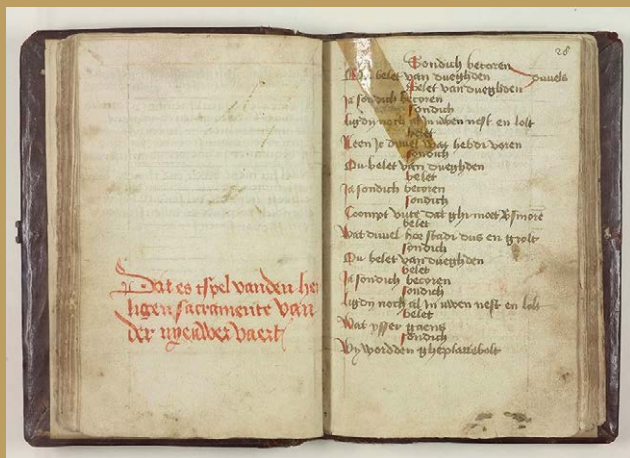 Dit es tspel vanden hei
ligen sacramente van
der nyeuwer vaert
28
Sondich becoren
Ou belet van dueghden duvels
Belet van dueghden
Ja sondich becoren
sondich
ligdy noch al in uwen nest en lolt
belet
Neen ic duvel wat hebdi voren
sondich
Ou belet van dueghden
belet
Ja sondich becoren
sondich
Coompt vute dat ghi moet
belet
Wat duvel hoe stadi dus en grolt
sondich
Ou belet van dueghden
belet
Ja sondich becoren
sondich
ligdy noch al in uwen nest en lolt
belet
Wat ysser gaens
sondich
Wy wordden gheplattebolt